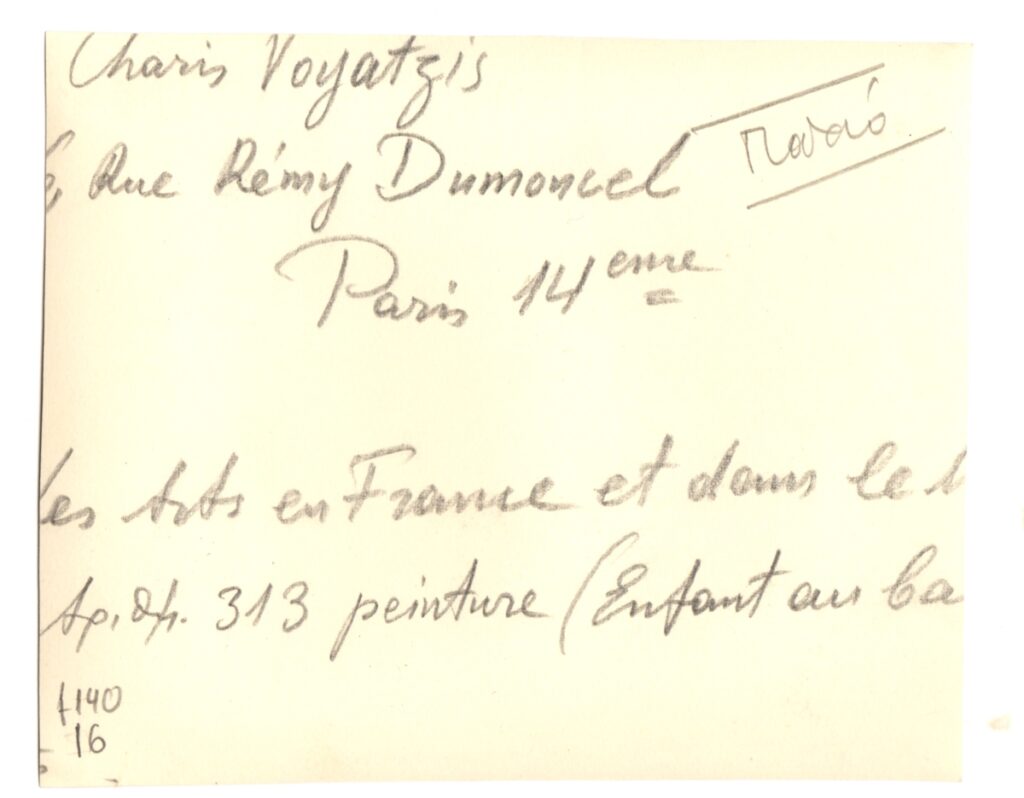 Charis Voyatzis
Παλαιό
6, Rue Rémy Dumoncel
Paris 14eme
Les Arts en France et dans le
313 peinture (Enfant au ba
f140
16